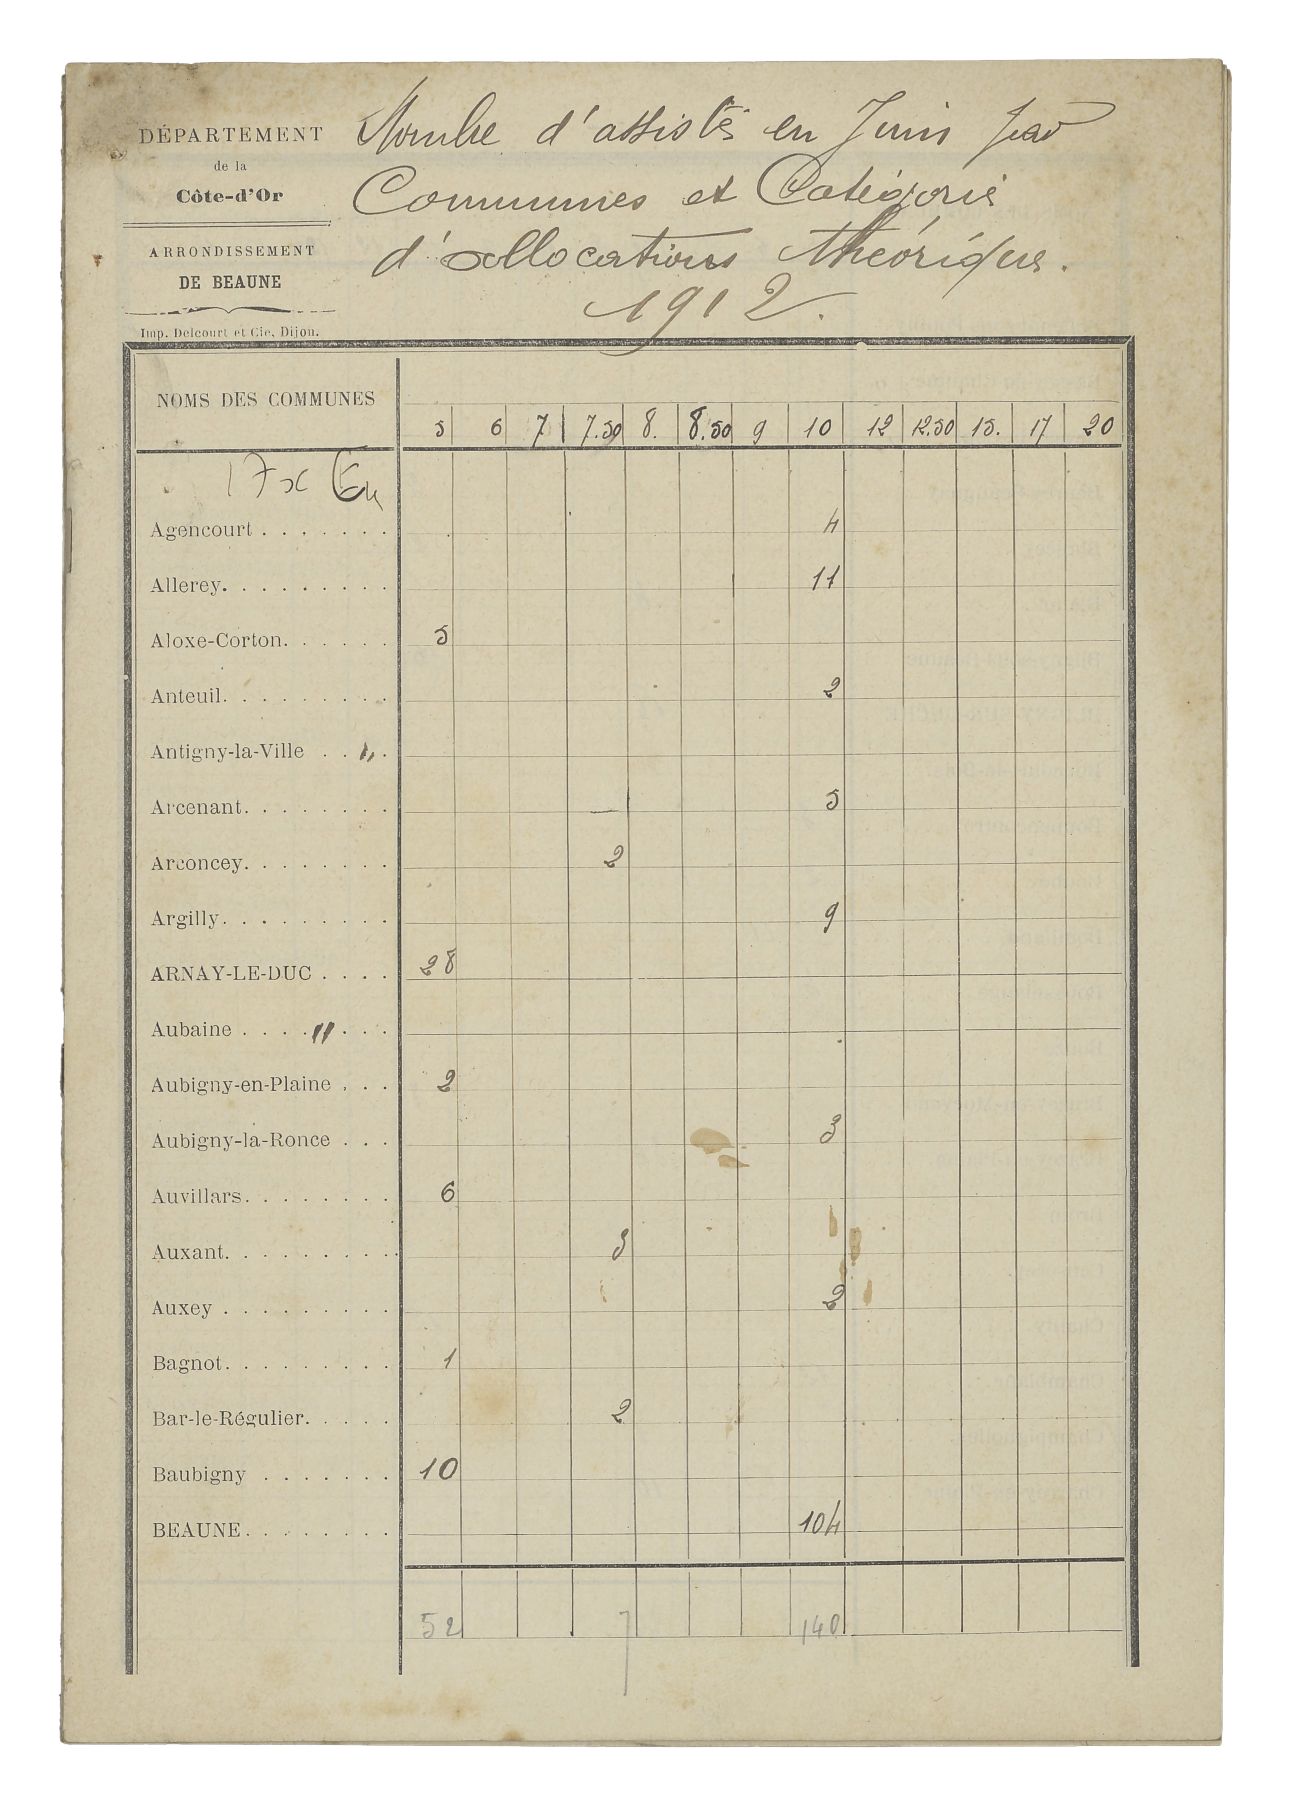 DÉPARTEMENT
de la
Côte-d'Or
ARRONDISSEMENT
DE BEAUNE
Imp. Delcourt et Cie, Dijon.
Nombre d'assistés en Juin par
Communes et Catégorie
d'allocations théorique.
1912.
NOMS DES COMMUNES
5 6 7 7.50 8. 8.50 9 10 12 12.50 15. 17 20
Agencourt . . . . . . . 4
Allerey. . . . . . . . . 11
Aloxe-Corton. . . . . . 5
Anteuil. . . . . . . . . 2
Antigny-la-Ville . . "
Arcenant. . . . . . . . — 5
Arconcey. . . . . . . . 2
Argilly. . . . . . . . . 9
ARNAY-LE-DUC . . . . 28
Aubaine . . . . " . . .
Aubigny-en-Plaine . . . 2
Aubigny-la-Ronce . . . 3
Auvillars. . . . . . . . 6
Auxant. . . . . . . . . 3
Auxey . . . . . . . . . 2
Bagnot. . . . . . . . . 1
Bar-le-Régulier. . . . . 2
Baubigny . . . . . . . 10
BEAUNE. . . . . . . . 104
52 7 140